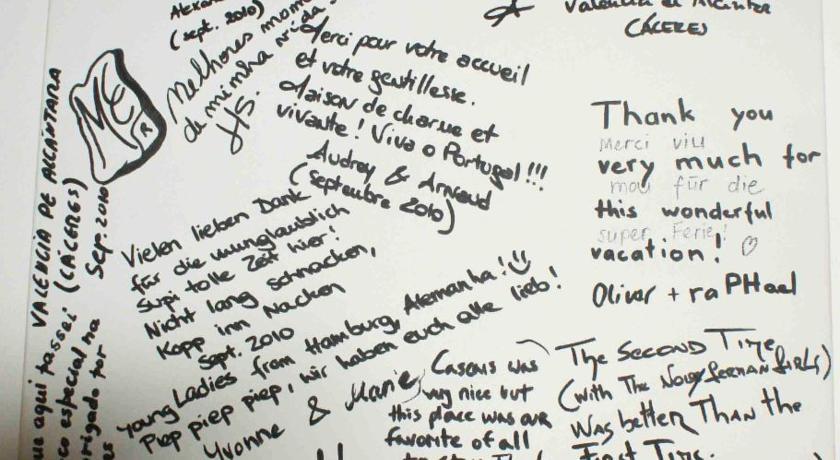 (sept. 2010)
Melhores mom
da minha vida
HS.
Merci pour votre accueil
et votre gentillesse.
Maison de charme et
vivante! Viva o Portugal!!!
Audrey & Arnaud
(Septembre 2010)
CÁCERES
Thank you
Merci viu
very much for
mou für die
this wonderful
super Ferie!
vacation! ♡
Oliver + raPHael
VALENCIA DE ALCÁNTARA
(CÁCERES)
Sep. 2010
ue aqui passei
co especial há
rigado por
Vielen lieben Dank
für die unnglaublich
Supi tolle Zeit hier!
Nicht lang schnacken,
Kopp inn Nacken
Sept. 2010
Young Ladies from Hamburg, Alemanha!
Piep piep piep, wir haben euch alle lieb!
Yvonne & Marie
Cascais was
very nice but
this place was our
favorite of all
The Second Time
(with The Noisy German Girls)
Was better Than the
First Time.